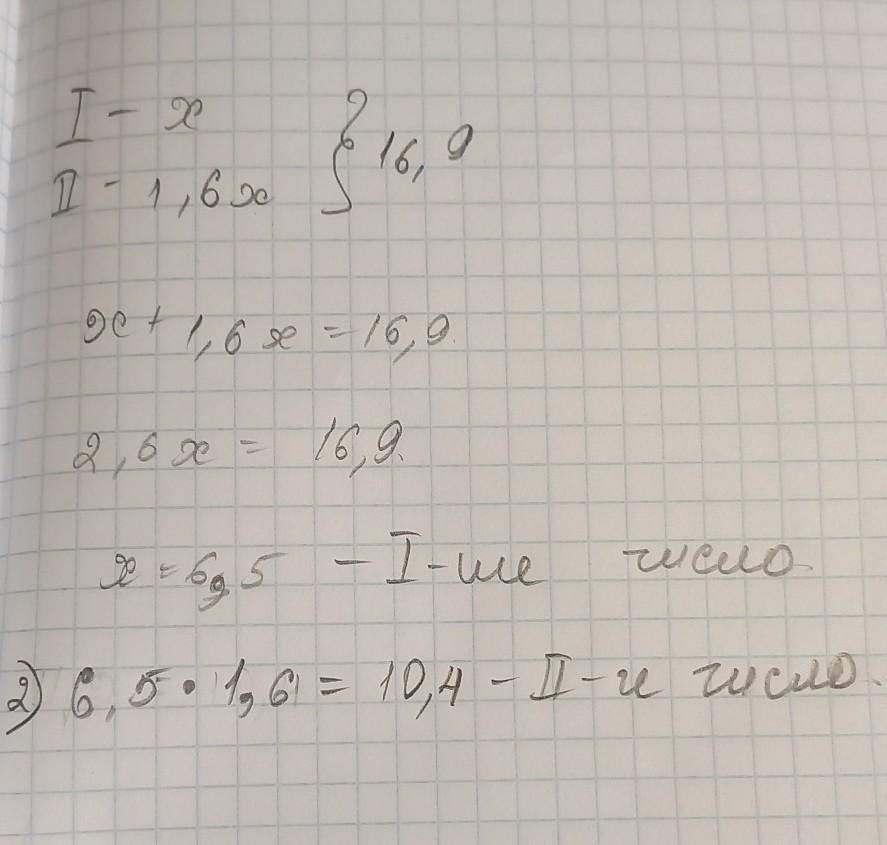 I - x
II - 1,6x } 16,9
x + 1,6x = 16,9.
2,6x = 16,9.
x = 6,5 - I-ше число.
2) 6,5 • 1,6 = 10,4 - II-и число.